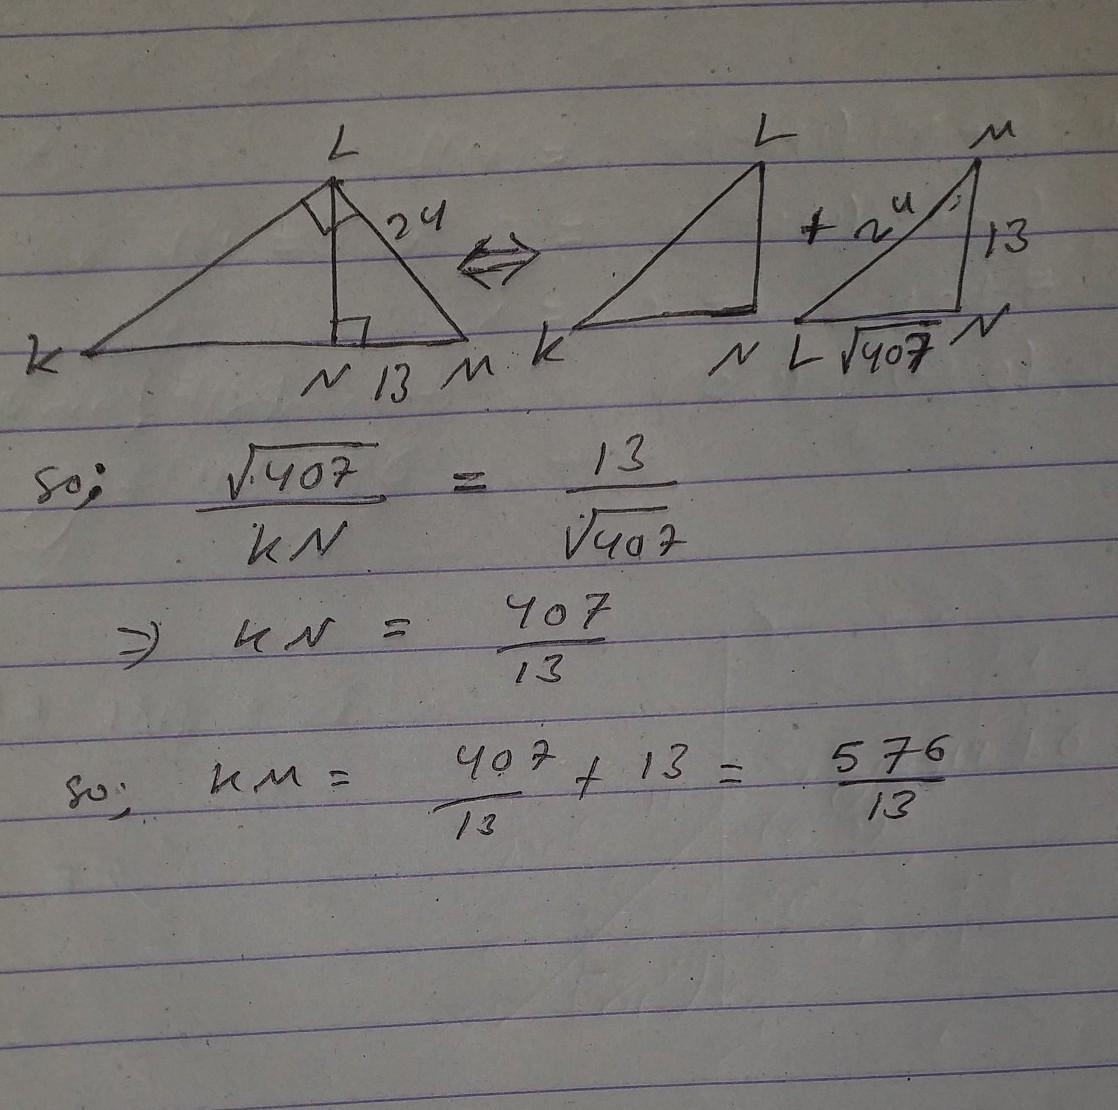 L L M
24 ⇔ + 24 13
K N 13 M K N L √407 N
so; √407/KN = 13/√407
⇒ KN = 407/13
so; KM = 407/13 + 13 = 576/13